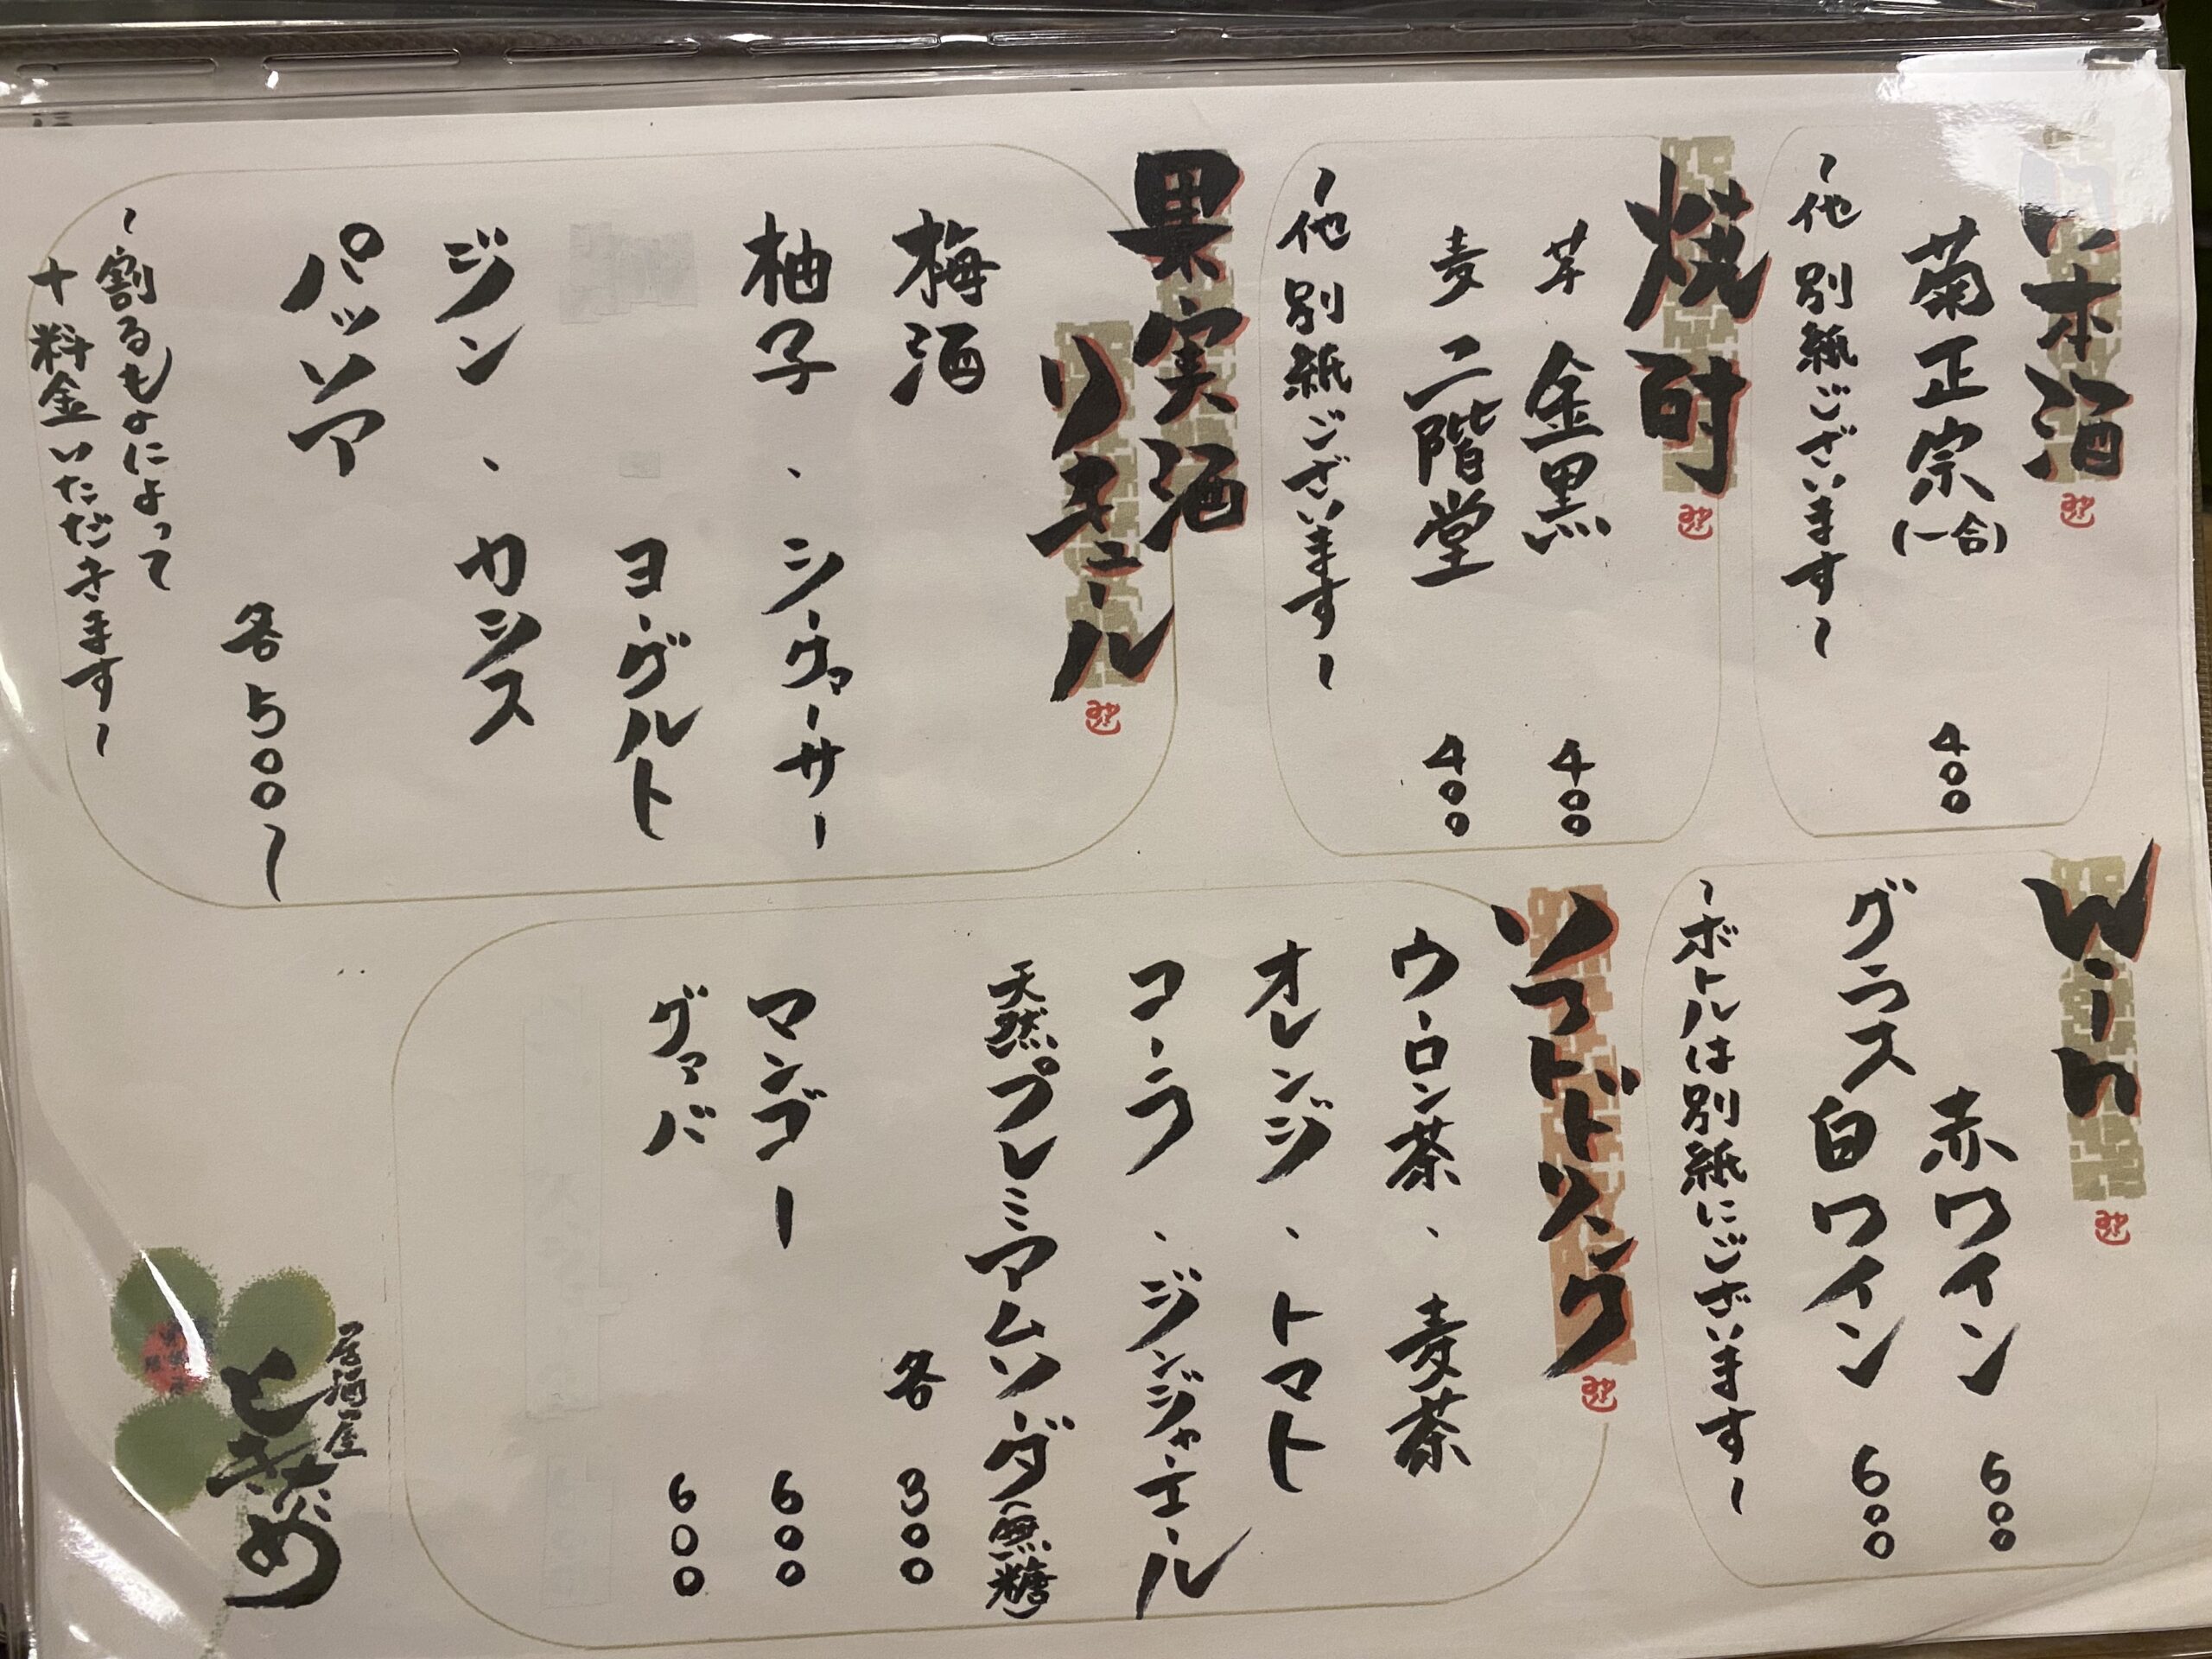 日本酒
菊正宗(一合) 400
~他 別紙ございます~
焼酎
芋 金黒 400
麦 二階堂 400
~他 別紙ございます~
果実酒
リキュール
梅酒
柚子、シークァーサー
ヨーグルト
ジン、カシス
パッソア
各500~
~割るものによって
+料金いただきます~
Win
赤ワイン 600
グラス白ワイン 600
~ボトルは別紙にございます~
ソフトドリンク
ウーロン茶、麦茶
オレンジ、トマト
コーラ、ジンジャーエール
天然プレミアムソーダ(無糖)
各 300
マンゴー 600
グァバ 600
居酒屋